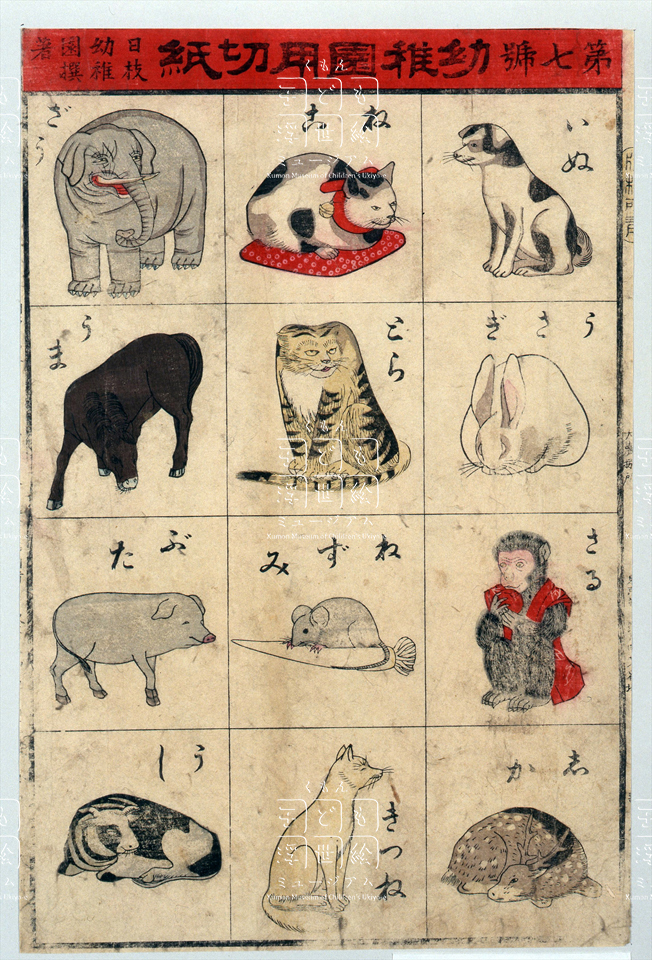 第七號
幼稚園用切紙
日枝
幼稚
園撰
著
いぬ
ねこ
ざう
うさぎ
とら
うま
さる
ねずみ
ぶた
しか
きつね
うし
くもん
子ども
浮世絵
ミュージアム
Kumon Museum of Children's Ukiyoe